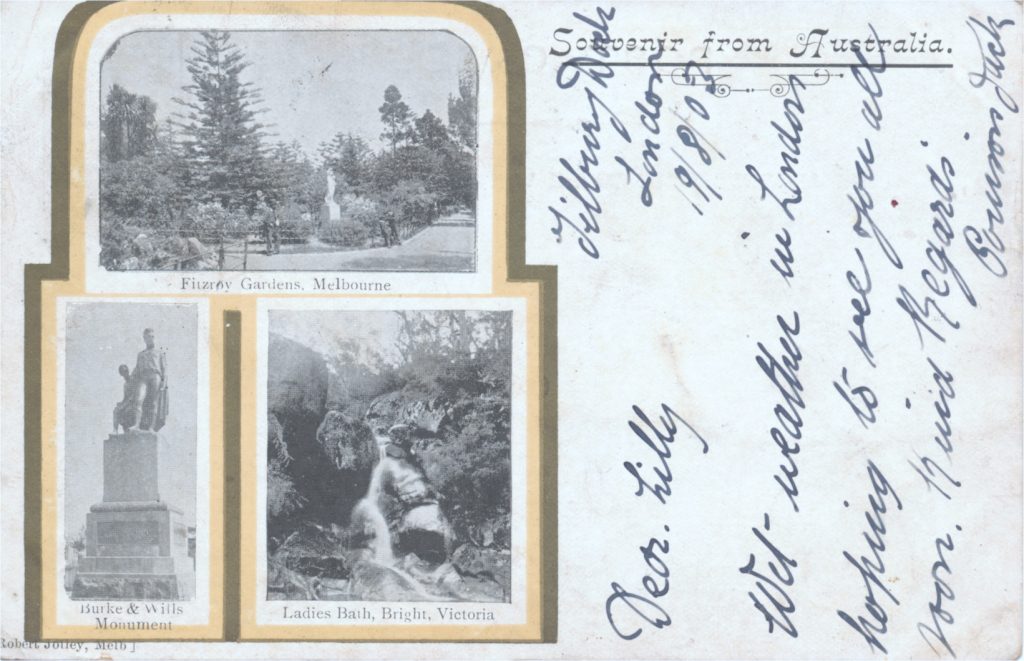 Souvenir from Australia.
Fitzroy Gardens, Melbourne
Burke & Wills
Monument
Ladies Bath, Bright, Victoria
Robert Jolley, Melb]
Tilbury Dock
London
19/8/03
Dear. Lilly
Wet weather in London
hoping to see you all
soon. Kind Regards
Jack